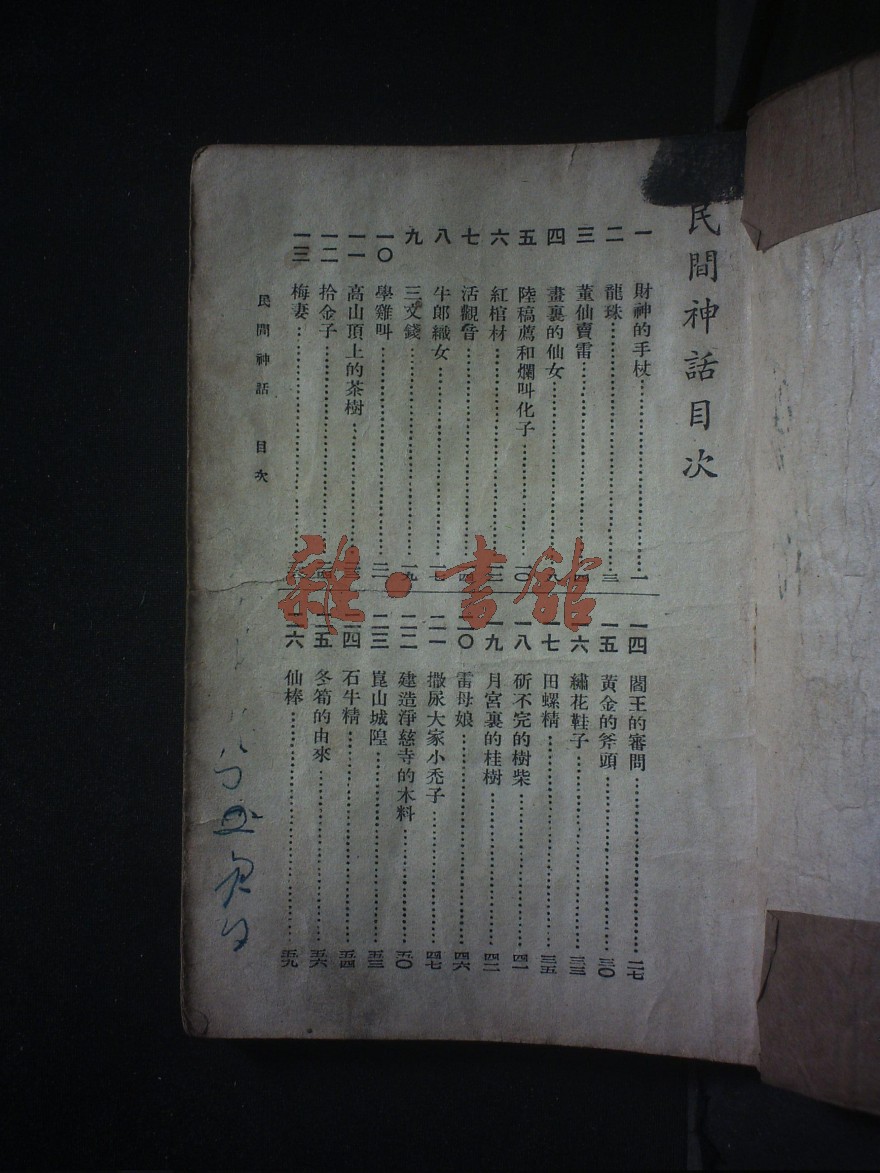 民間神話目次
一 財神的手杖 一
二 龍珠 三
三 董仙賣雷 四
四 畫裏的仙女
五 陸稿薦和爛叫化子 一〇
六 紅棺材
七 活觀音
八 牛郎織女
九 三文錢 一九
一〇 學雞叫 二一
一一 高山頂上的茶樹
一二 拾金子
一三 梅妻
一四 閻王的審問 二七
一五 黃金的斧頭 三〇
一六 繡花鞋子 三三
一七 田螺精 三五
一八 斫不完的樹柴 四一
一九 月宮裏的桂樹 四二
二〇 雷母娘 四六
二一 撒尿大家小禿子 四七
二二 建造淨慈寺的木料 五〇
二三 崑山城隍 五三
二四 石牛精 五四
二五 冬筍的由來 五六
二六 仙棒 五九
民間神話 目次
雜·書館